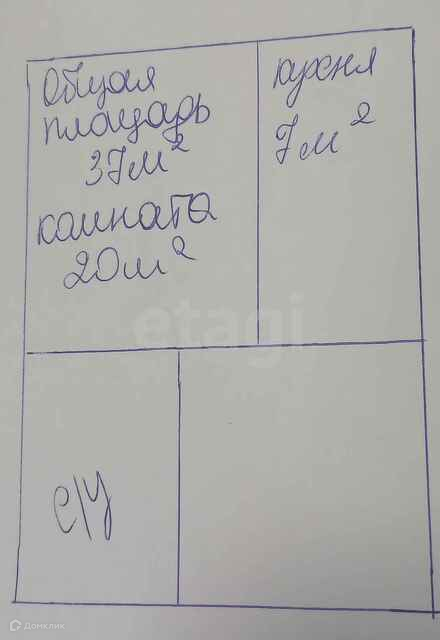 Общая
площадь
37м²
комната
20м²
кухня
7м²
etagi
с/у
Домклик